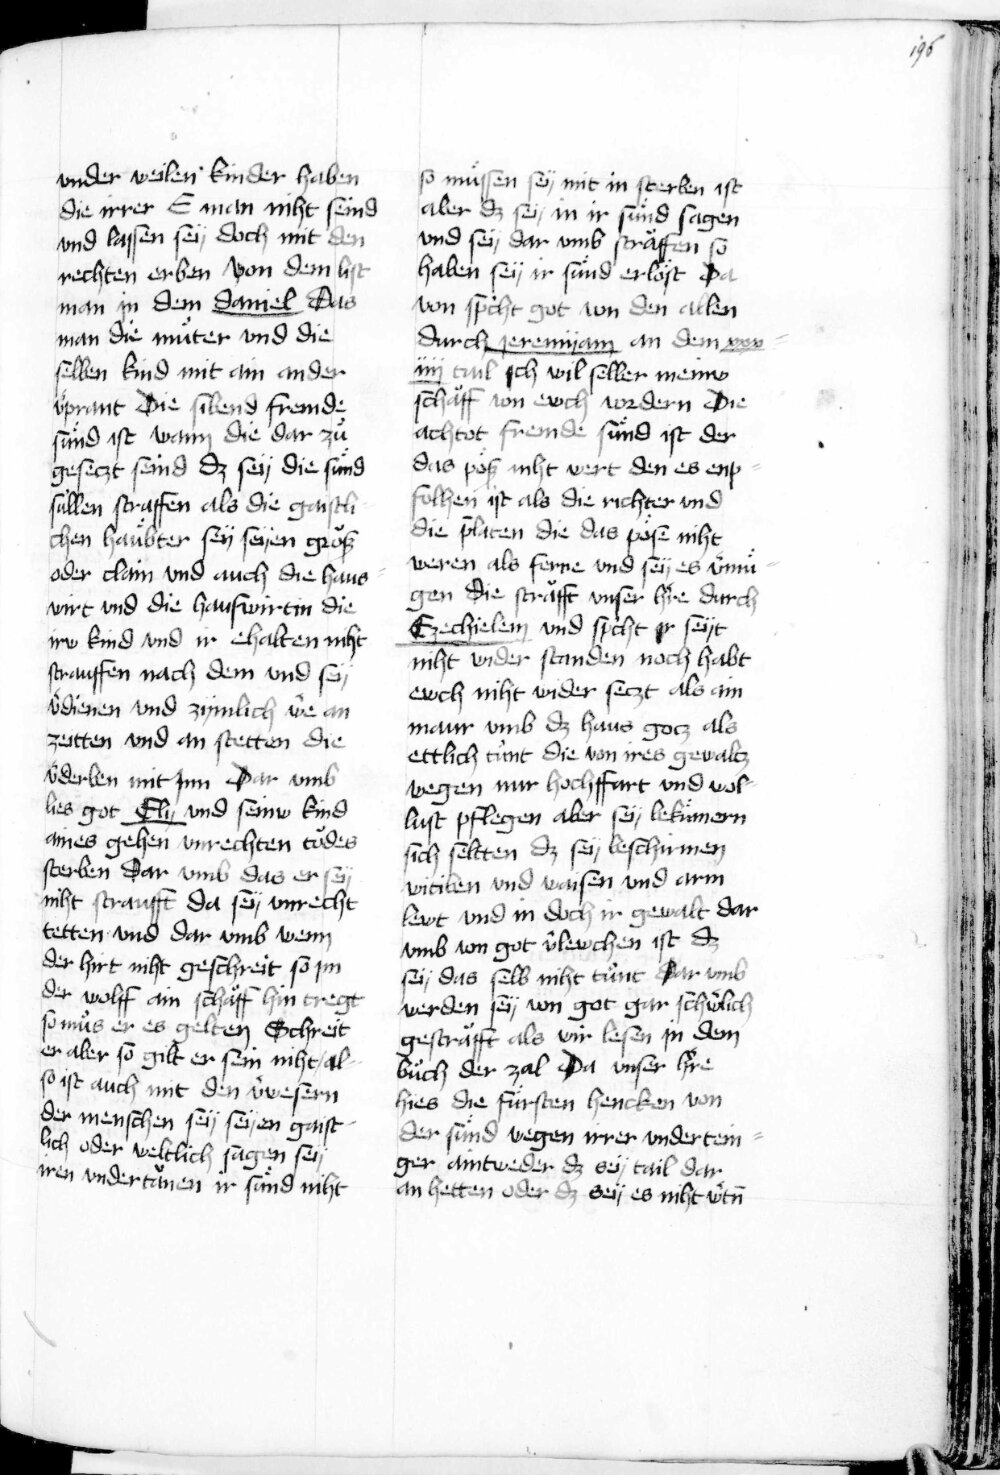 196
vnder weilen kinder haben
die irrer E man niht seind
vnd lassen seÿ doch mit den
rechten erben Von dem list
man in dem daniel Das
man die mu̇ter vnd die
selben kind mit ain ander
v̂prant Die sibend fremde
sünd ist wann die dar zů
geseczt seind dz seÿ die sünd
süllen straffen als die gaistli
chen haübter seÿ seÿen grosz
oder clain vnd auch die haus-
wirt vnd die hausfwirtin die
irw kind vnd ir ehalten niht
strauffen nach dem vnd seÿ
v̂dienen vnd zÿmlich w̑e an
zeitten vnd an stetten die
v̂derben mit jnn Dar vmb
lies got Elÿ vnd seinw kind
aines gehen vnrechten tödes
sterben Dar vmb das er seÿ
niht straufft da seÿ vnrecht
tetten vnd dar vmb wenn
der hirt niht geschreit so jm
der wolff ain schäff hin tregt
so můs er es gelten Schreit
er aber so gilt er sein niht / al-
so ist auch mit den v̂wesern
der menschen seÿ seÿen gaist-
lich oder weltlich sagen seÿ
iren vndertänen ir sünd niht
so müssen seÿ mit in sterben ist
aber dz seÿ in ir sünd sagen
vnd seÿ dar vmb sträffen so
haben seÿ ir sünd erlöst Da
von sp̑cht got von den allen
durch jeremÿam an dem xxx-
iiij tail Jch wil selber meinw
schäff von ewch vordern Die
achtot fremde sünd ist der
das pösz niht wert den es enp-
folhen ist als die richter vnd
die p̄laten die das pöse niht
weren als ferre vnd seÿ es v̂mü-
gen Die sträfft vnser h̑re durch
Ezechielem vnd sp̑cht jr seÿt
niht wider standen noch habt
ewch niht wider seczt als ain
maur vmb dz haus gocz als
ettlich tu̇nt die von ires gewaltz
wegen nur hochffart vnd wol-
lust pflegen aber seÿ bekümern
sich seltten dz seÿ beschirmen
witiben vnd waisen vnd arm
lewt vnd in doch ir gewalt dar
vmb von got v̂lewchen ist dz
seÿ das selb niht tünt Dar vmb
werden seÿ von got gar schw̑lich
gesträfft als wir lesen jn dem
bůch der zal Da vnser h̑re
hies die fürsten hencken von
der sünd wegen irrer vndertein-
ger aintweder dz seÿ tail dar
an hetten oder dz seÿ es niht w̑tn̄